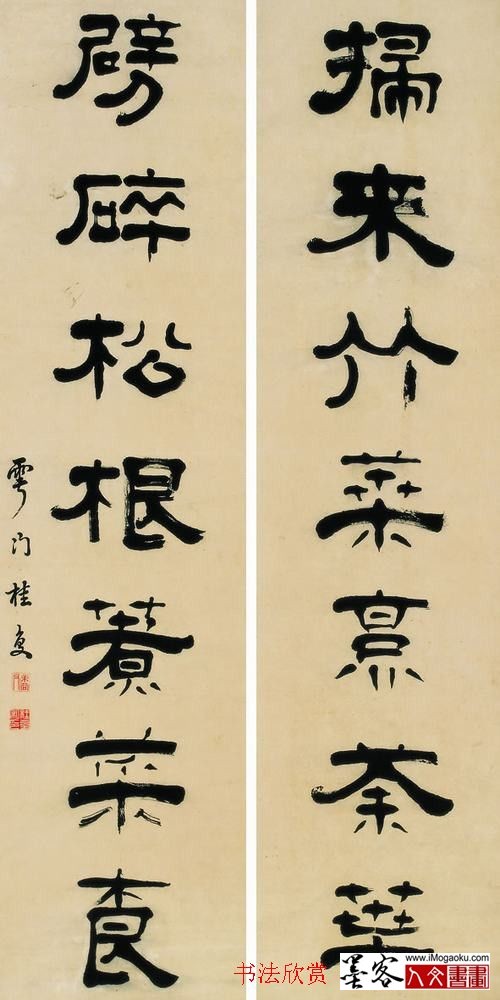 掃來竹葉烹茶葉
劈碎松根煮菜根
雩門桂复
书法欣赏
墨客
www.iMogaoku.com
人文書畫